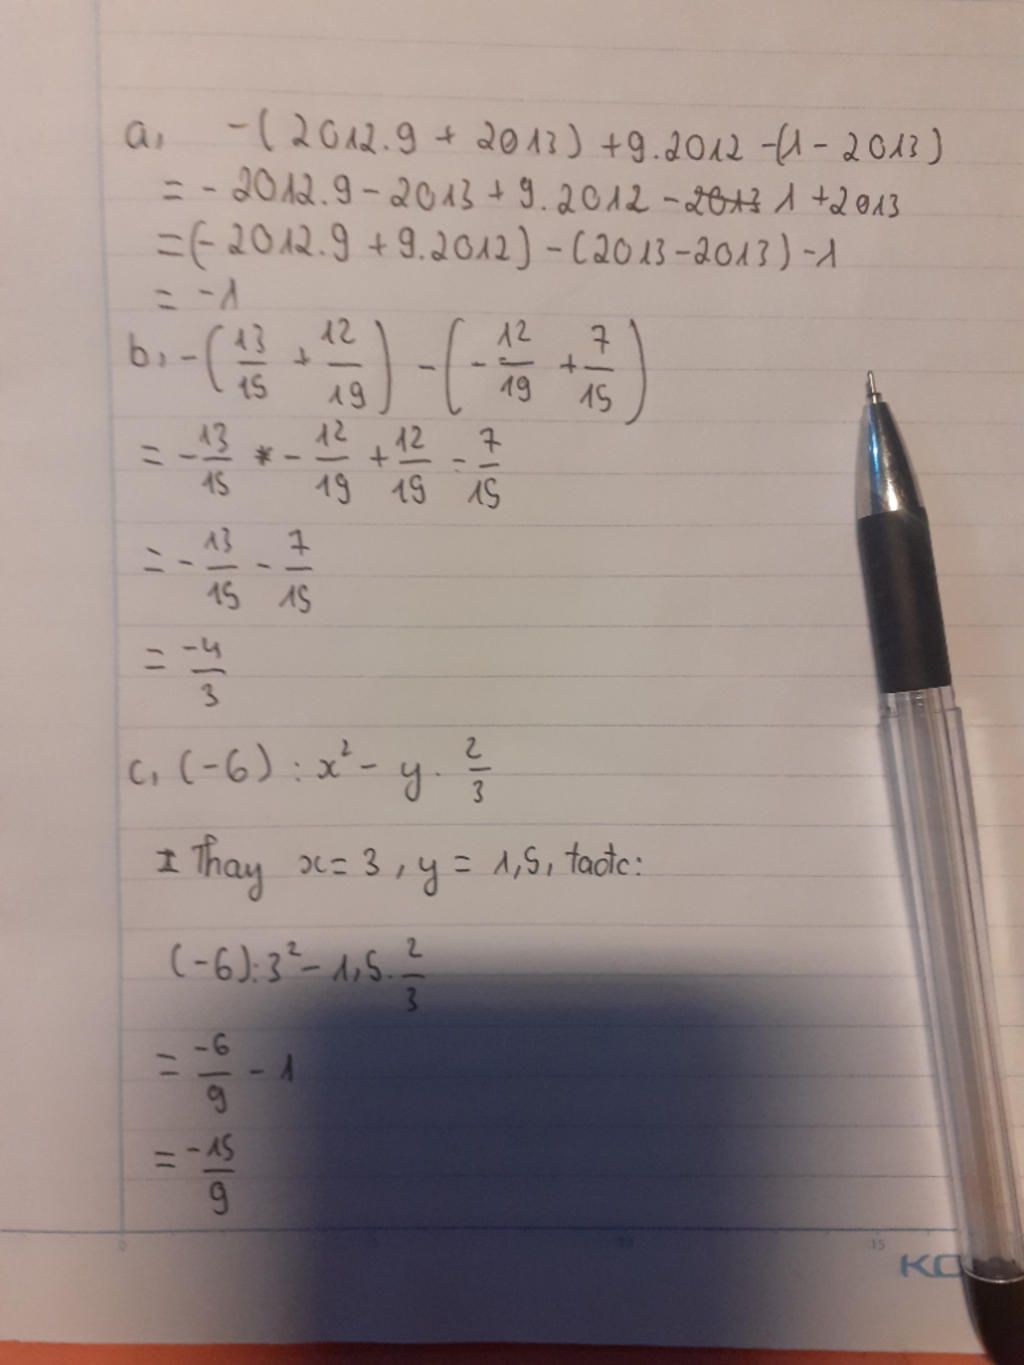 a, -(2012.9 + 2013) + 9.2012 -(1 - 2013)
= - 2012.9 - 2013 + 9.2012 - 2013 1 + 2013
=(- 2012.9 + 9.2012) - (2013 - 2013) - 1
= -1
b, -(13/15 + 12/19) - (- 12/19 + 7/15)
= - 13/15 - 12/19 + 12/19 - 7/15
= - 13/15 - 7/15
= -4/3
c, (-6) : x² - y. 2/3
Thay x = 3, y = 1,5, tađc:
(-6):3² - 1,5. 2/3
= -6/9 - 1
= -15/9
0 10 15